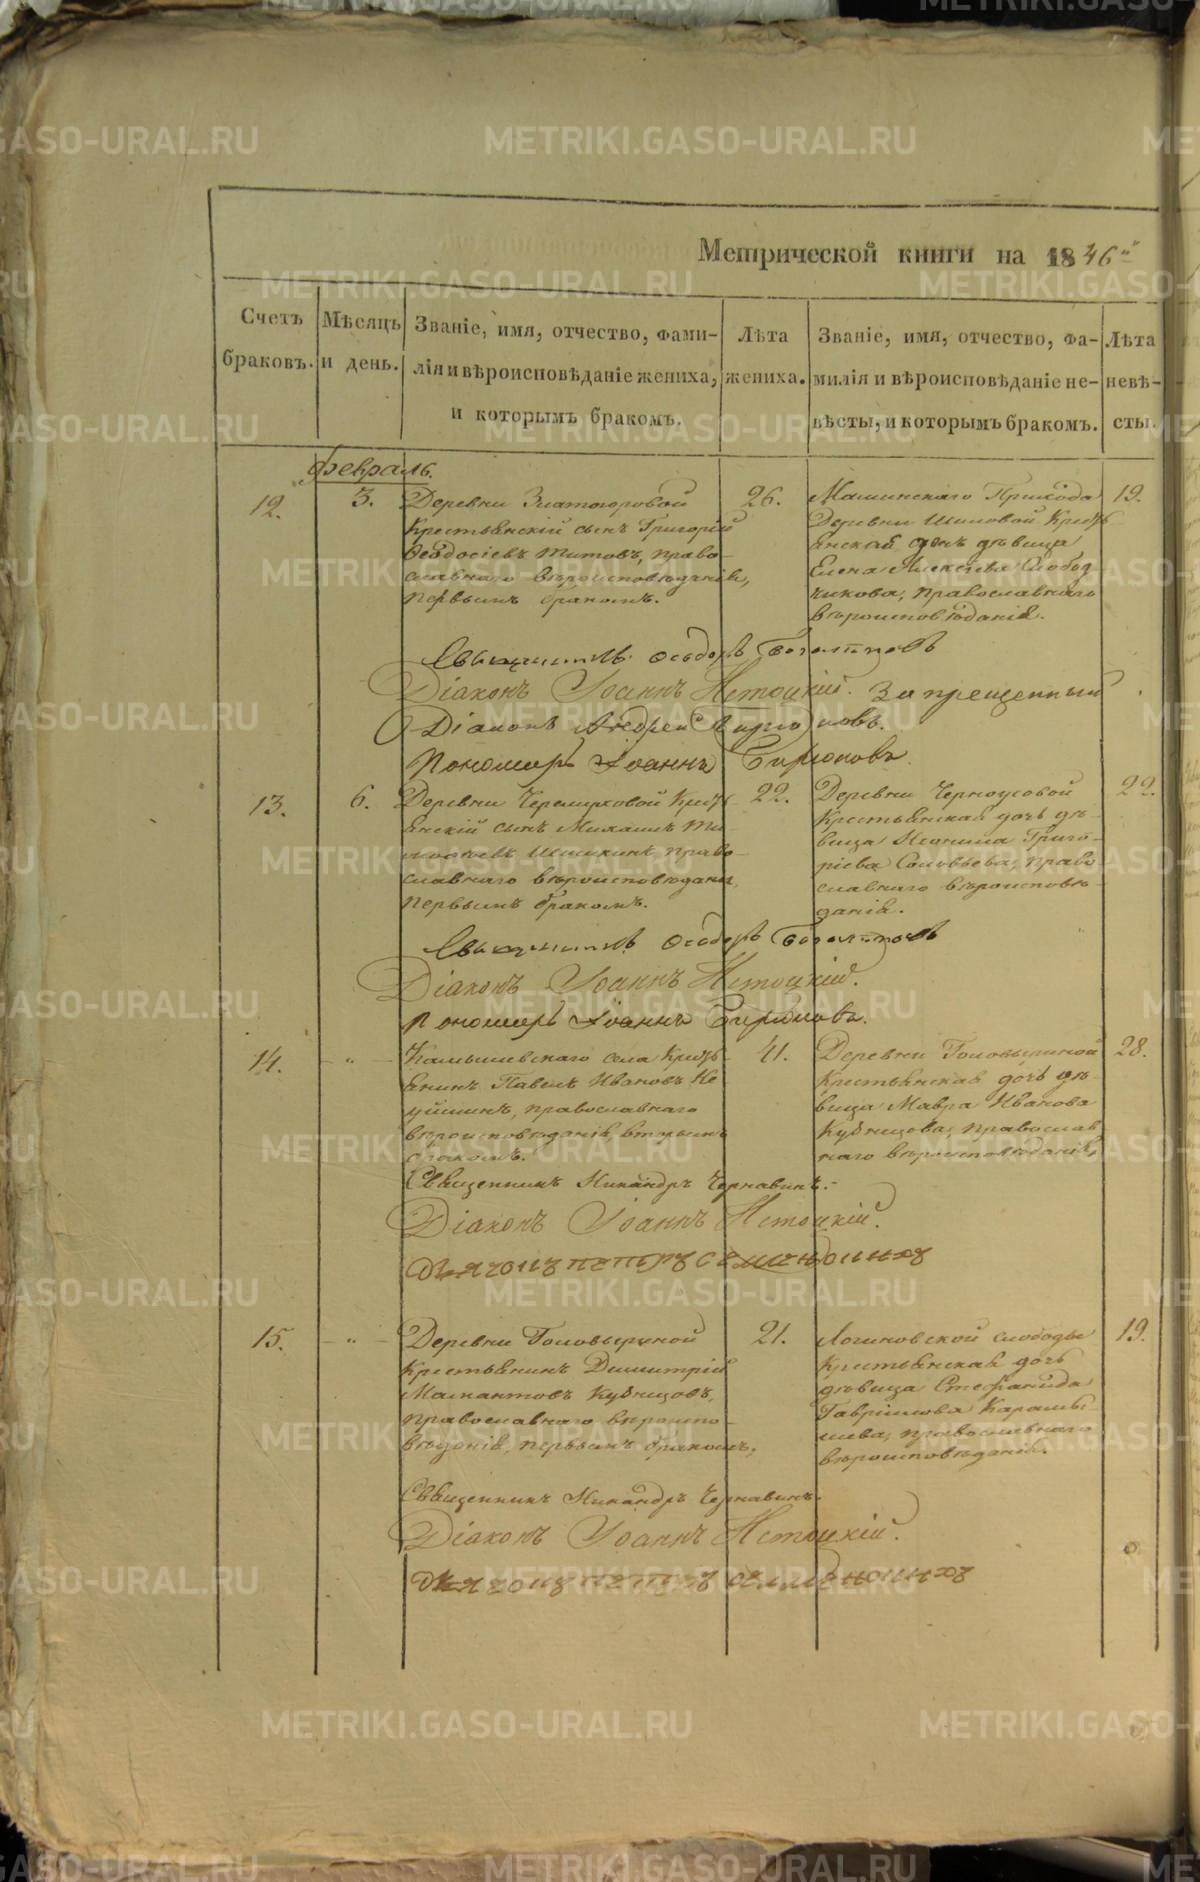 Метрической книги на 1846й
Счетъ браковъ.
Мѣсяцъ и день.
Званіе, имя, отчество, фами-
лія и вѣроисповѣданіе жениха,
и которымъ бракомъ.
Лѣта
жениха.
Званіе, имя, отчество, фа-
милія и вѣроисповѣданіе не-
вѣсты, и которымъ бракомъ.
Лѣта
невѣ-
сты.
февраль.
12.
3.
Деревни Златогоровой
Крестьянскій сынъ Григорій
Ѳеодосіевъ Титовъ, право-
славнаго вѣроисповѣданія,
первымъ бракомъ.
26.
Маминскаго Прихода
Деревни Шиловой Кресть-
янская дочь дѣвица
Елена Алексѣева Слобод-
чикова, православнаго
вѣроисповѣданія.
19.
Священникъ Ѳеодоръ
Діаконъ Іоаннъ Нетоцкій. Запрещенный
Діаконъ Андрей
Пономарь Іоаннъ Бирюковъ.
13.
6.
Деревни Черемховой Кресть-
янскій сынъ Михаилъ Ти-
моѳеевъ Шишкинъ, право-
славнаго вѣроисповѣданія,
первымъ бракомъ.
22.
Деревни Черноусовой
Крестьянская дочь дѣ-
вица Неонила Григо-
ріева Соловьева, право-
славнаго вѣроисповѣ-
данія.
22.
Священникъ Ѳеодоръ
Діаконъ Іоаннъ Нетоцкій.
Пономарь Іоаннъ Бирюковъ.
14.
- " -
Камышевскаго села Кресть-
янинъ Павелъ Ивановъ Не
уйминъ, православнаго
вѣроисповѣданія, вторымъ
бракомъ.
41.
Деревни Головыриной
Крестьянская дочь дѣ-
вица Мавра Иванова
Кузнецова, православ-
наго вѣроисповѣданія,
28.
Священникъ Никандръ Чернавинъ.
Діаконъ Іоаннъ Нетоцкій.
Дьячокъ Петръ
15.
- " -
Деревни Головыриной
Крестьянинъ Димитрій
Маркантовъ Кузнецовъ,
православнаго вѣроиспо-
вѣданія, первымъ бракомъ,
21.
Логиновской слободы
Крестьянская дочь
дѣвица Стефанида
Гавріилова Карамы
шева, православнаго
вѣроисповѣданія.
19.
Священникъ Никандръ Чернавинъ.
Діаконъ Іоаннъ Нетоцкій.
Дьячокъ Петръ
METRIKI.GASO-URAL.RU